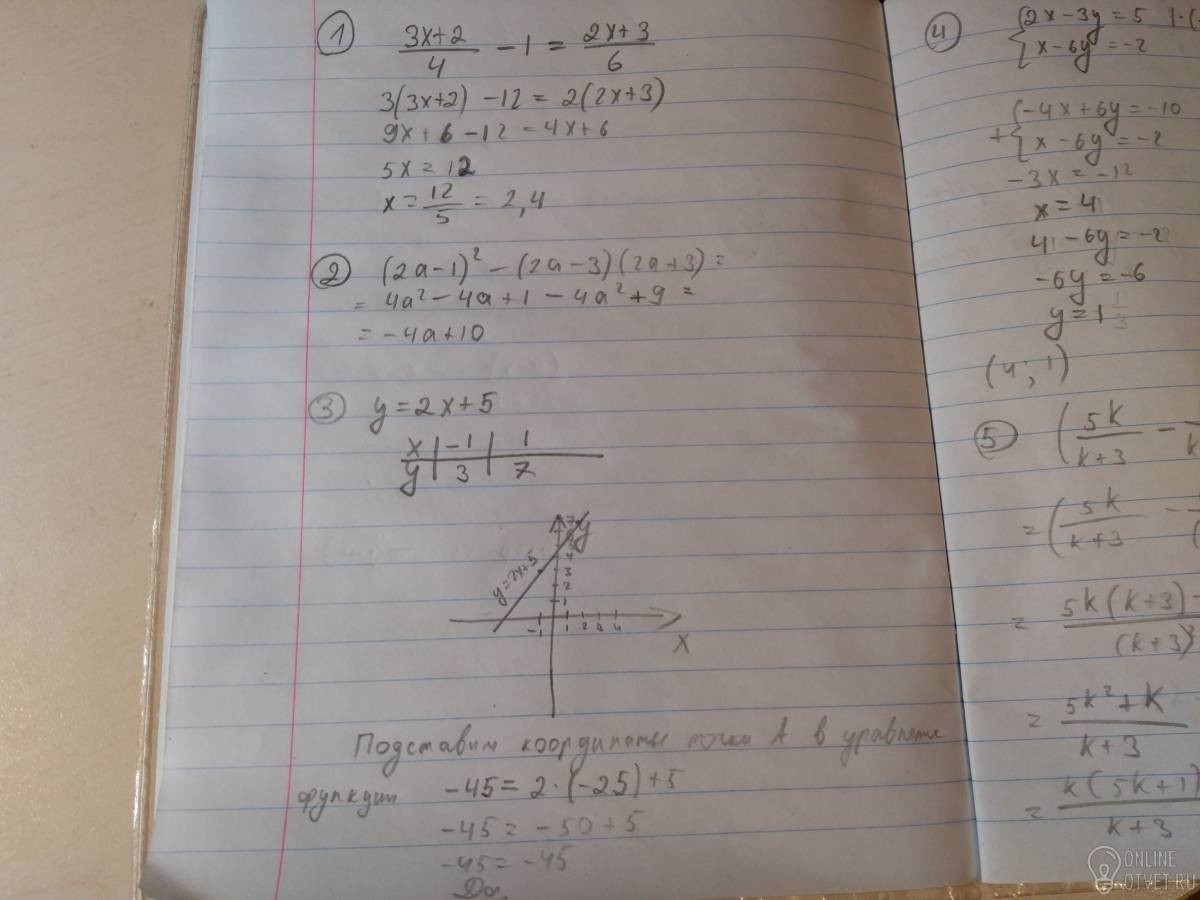 ① (3x+2)/4 − 1 = (2x+3)/6
3(3x+2) − 12 = 2(2x+3)
9x + 6 − 12 = 4x + 6
5x = 12
x = 12/5 = 2,4
② (2a−1)² − (2a−3)(2a+3) =
= 4a² − 4a + 1 − 4a² + 9 =
= −4a + 10
③ y = 2x + 5
x | −1 | 1
y | 3 | 7
y
7
4
3
2
1
y=2x+5
−1 1 2 3 4
x
Подставим координаты точки A в
функции −45 = 2·(−25) + 5
−45 = −50 + 5
−45 = −45
Да,
④ {2x − 3y = 5 | · (
{x − 6y = −2
+ {−4x + 6y = −10
{x − 6y = −2
−3x = −12
x = 4
4 − 6y = −2
−6y = −6
y = 1
(4; 1)
⑤ (5k/(k+3) −
= (5k/(k+3) −
= 5k(k+3) −
(k+3)
= (5k² + k)/(k+3)
= k(5k+1)/(k+3)
ONLINE
OTVET.RU